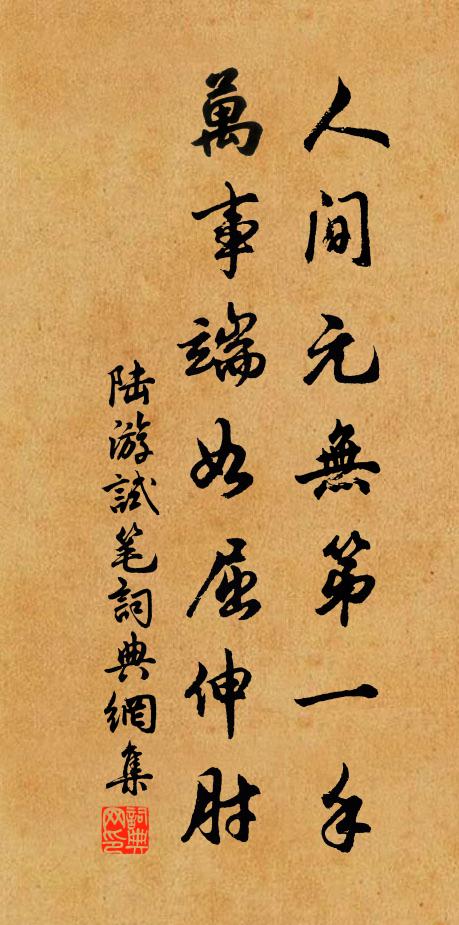 人间元無第一手
萬事端如屈伸肘
陆游試笔詞典網集
詞典网印